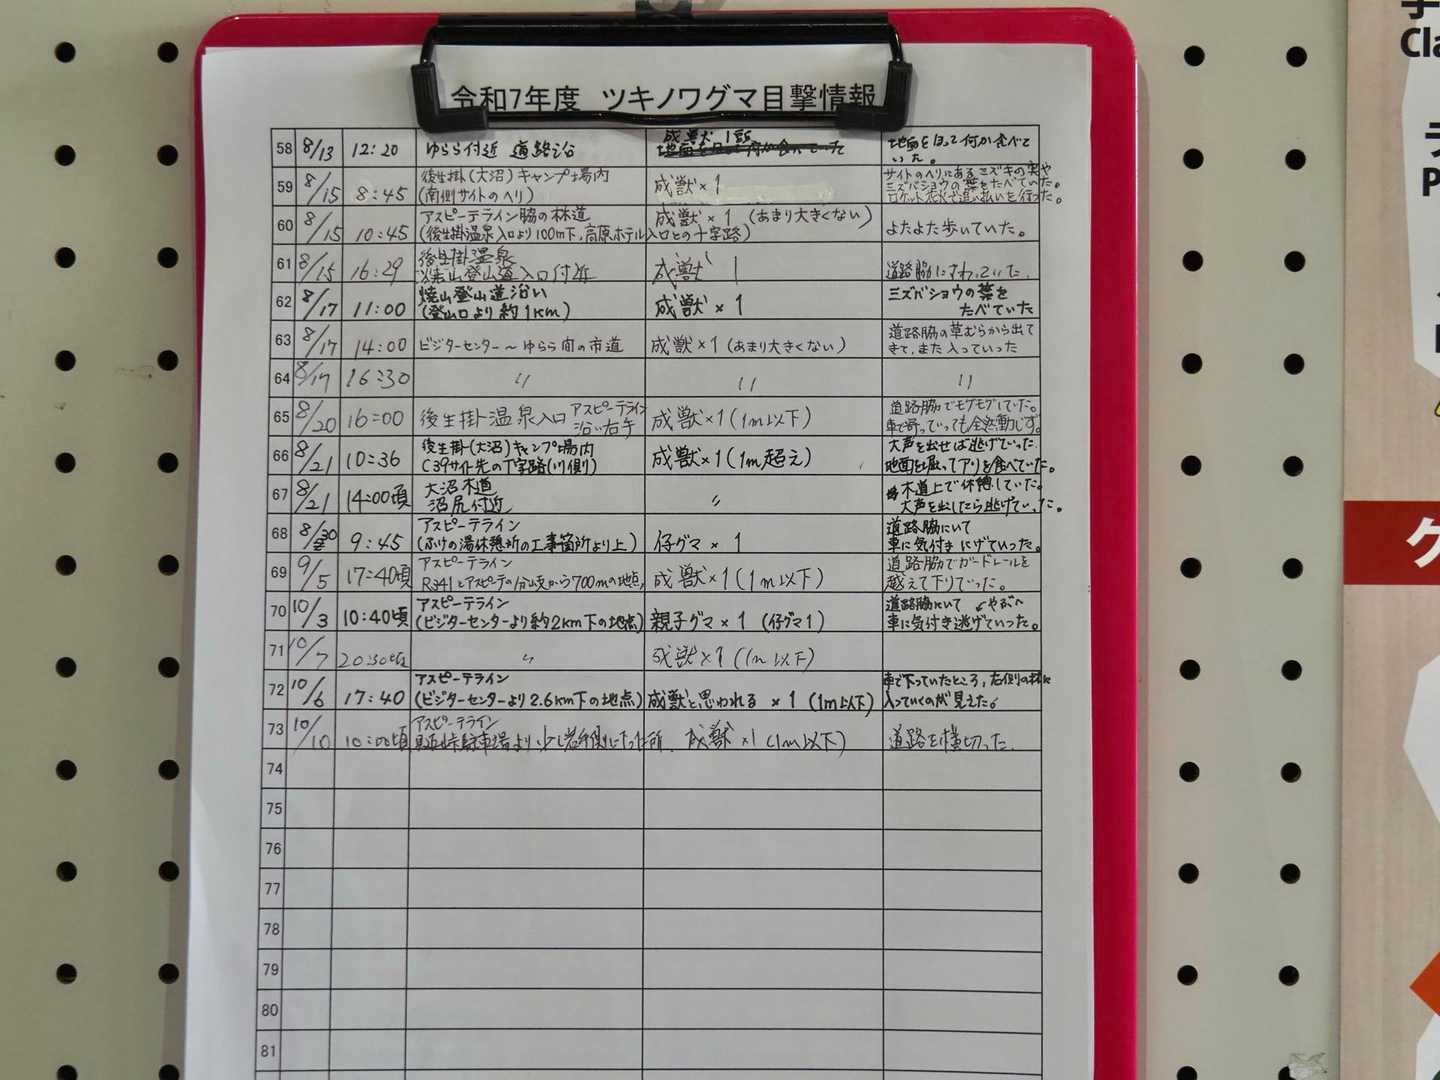 令和7年度 ツキノワグマ目撃情報
58 8/13 12:20 ゆらら付近 道路沿 成獣 1頭 地面をほって何か食べて
いた。
59 8/15 8:45 後生掛(大沼)キャンプ場内 成獣×1 サイトのヘリにあるミズキの実や
(南側サイトのヘリ) ミズバショウの葉をたべていた。
ロケット花火で追い払いを行った。
60 8/15 10:45 アスピーテライン脇の林道 成獣×1 (あまり大きくない) よたよた歩いていた。
(後生掛温泉入口より100m下、高原ホテル入口との十字路)
61 8/15 16:29 後生掛温泉 成獣 1 道路脇にすわっていた.
焼山登山道入口付近
62 8/17 11:00 焼山登山道沿い 成獣×1 ミズバショウの葉を
(登山口より約1km) たべていた
63 8/17 14:00 ビジターセンター〜ゆらら間の市道 成獣×1 (あまり大きくない) 道路脇の草むらから出て
きて、また入っていった
64 8/17 16:30 〃 〃 〃
65 8/20 16:00 後生掛温泉入口 アスピーテライン 成獣×1(1m以下) 道路脇でモグモグしていた。
沿い右手 車で寄っていっても全然動じず。
66 8/21 10:36 後生掛(大沼)キャンプ場内 成獣×1(1m超え) 大声を出せば逃げていった.
C39サイト先のT字路(川側) 地面を堀ってアリを食べていた。
67 8/21 14:00頃 大沼木道 〃 木道上で休憩していた。
沼尻付近 大声を出したら逃げていった。
68 8/30 9:45 アスピーテライン 仔グマ×1 道路脇にいて
(ふけの湯休憩所の工事箇所より上) 車に気付きにげていった。
69 9/5 17:40頃 アスピーテライン 成獣×1(1m以下) 道路脇でガードレールを
R341とアスピーテの分岐から700mの地点 越えて下りていった。
70 10/3 10:40頃 アスピーテライン 親子グマ×1 (仔グマ1) 道路脇にいて ←やぶへ
(ビジターセンターより約2km下の地点) 車に気付き逃げていった。
71 10/7 20:30頃 〃 成獣×1(1m以下)
72 10/6 17:40 アスピーテライン 成獣と思われる×1 (1m以下) 車で下っていたところ、右側の林に
(ビジターセンターより2.6km下の地点) 入っていくのが見えた。
73 10/10 10:00頃 アスピーテライン 成獣×1(1m以下) 道路を横切った.
駐車場より少し岩手側に下った所.
74
75
76
77
78
79
80
81
Cla
P